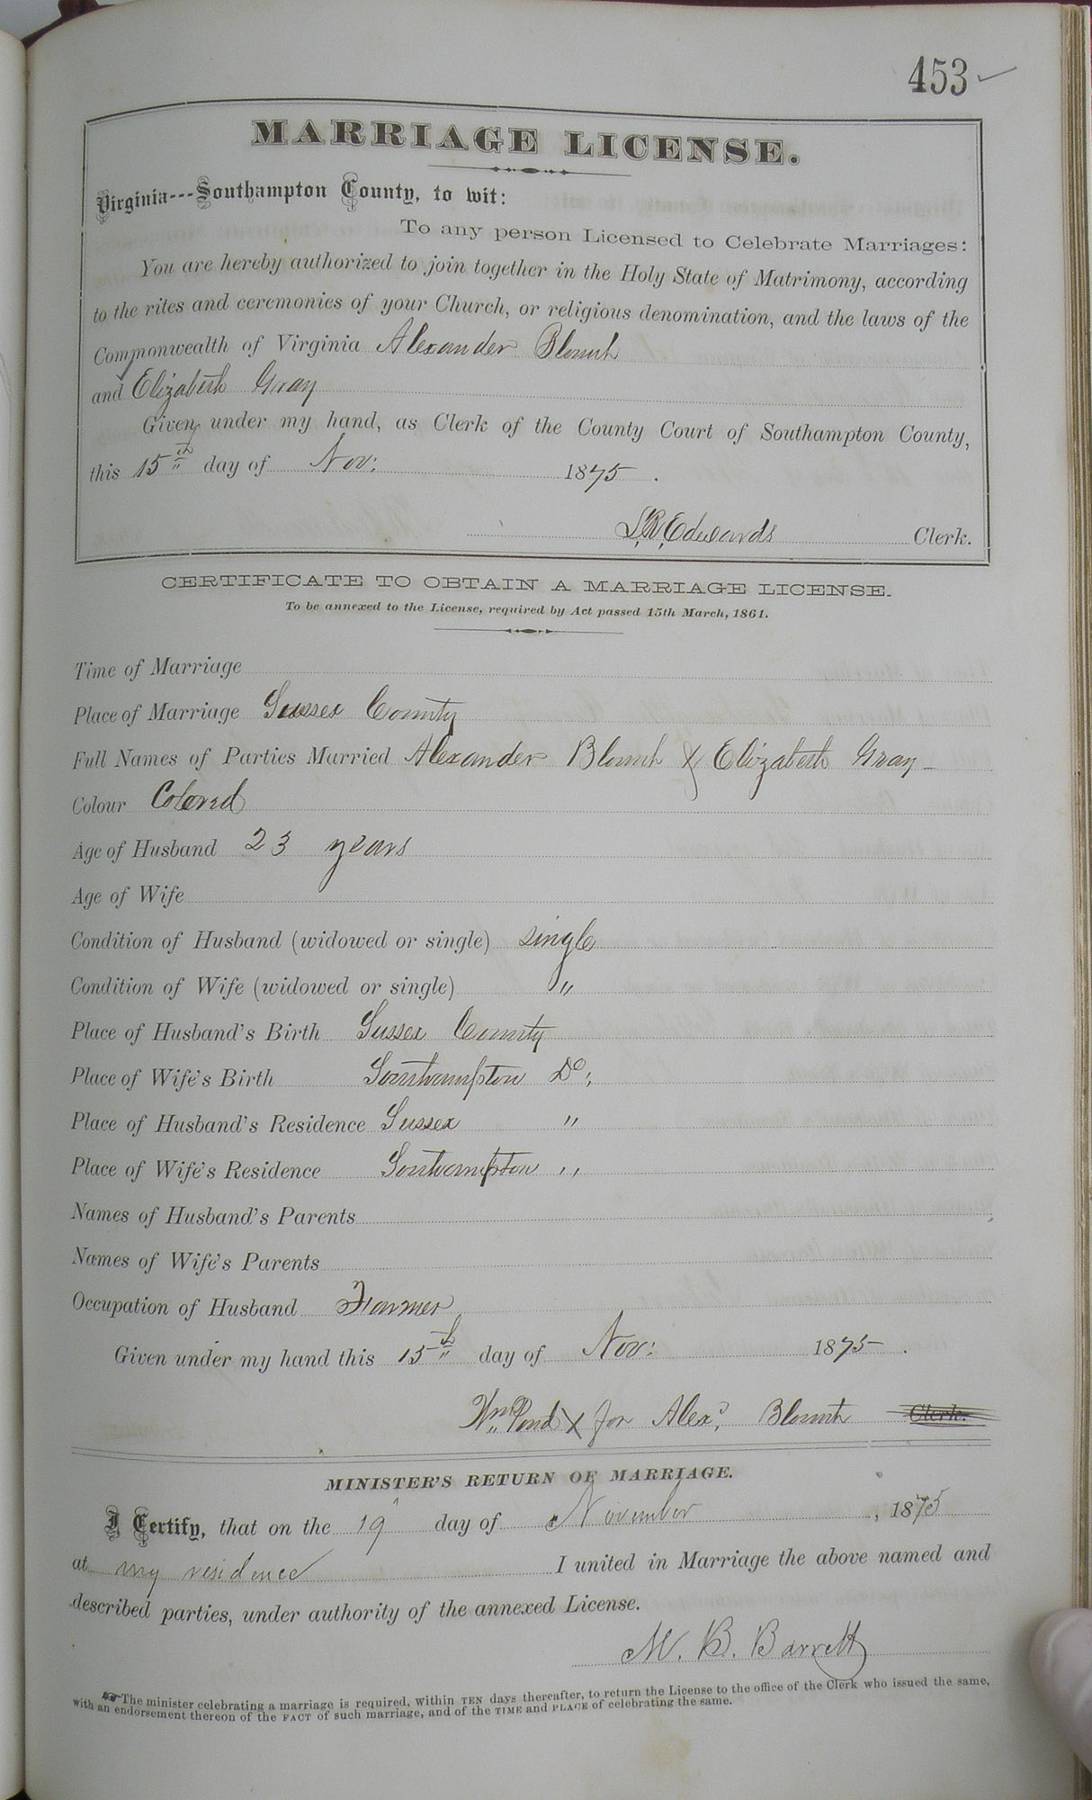 453
MARRIAGE LICENSE.
Virginia---Southampton County, to wit:
To any person Licensed to Celebrate Marriages:
You are hereby authorized to join together in the Holy State of Matrimony, according
to the rites and ceremonies of your Church, or religious denomination, and the laws of the
Commonwealth of Virginia Alexander Blount
and Elizabeth Gray
Given under my hand, as Clerk of the County Court of Southampton County,
this 15th day of Nov: 1875.
L. R. Edwards Clerk.
CERTIFICATE TO OBTAIN A MARRIAGE LICENSE.
To be annexed to the License, required by Act passed 15th March, 1861.
Time of Marriage
Place of Marriage Sussex County
Full Names of Parties Married Alexander Blount & Elizabeth Gray
Colour Colored
Age of Husband 23 years
Age of Wife
Condition of Husband (widowed or single) single
Condition of Wife (widowed or single) "
Place of Husband's Birth Sussex County
Place of Wife's Birth Southampton Do:
Place of Husband's Residence Sussex "
Place of Wife's Residence Southampton "
Names of Husband's Parents
Names of Wife's Parents
Occupation of Husband Farmer
Given under my hand this 15th day of Nov: 1875.
Wm Pond X for Alexr. Blount Clerk.
MINISTER'S RETURN OF MARRIAGE.
I Certify, that on the 19 day of November, 1875
at my residence I united in Marriage the above named and
described parties, under authority of the annexed License.
M. B. Barrett
The minister celebrating a marriage is required, within TEN days thereafter, to return the License to the office of the Clerk who issued the same,
with an endorsement thereon of the FACT of such marriage, and of the TIME and PLACE of celebrating the same.